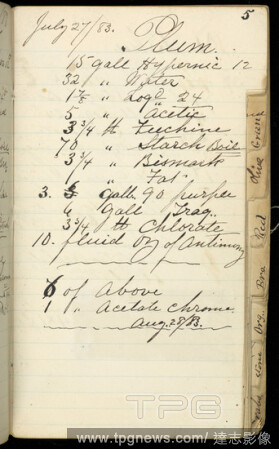 5
July 27/83.
Plum.
15 Gall Hypernic 12
32 " Water
1⅞ " Logd 24
5 " Acetic
3¾ lb Fuchine
70 " Starch Boil
3¾ " Bismark
1 " Fat
3. Gall 90 purple
6 Gall Trag.
3¾ lb Chlorate
10. fluid oz of antimony
6 of above
1 " Acetate Chrome
Aug. 28/83.
Olive
Red
TPG
www.tpgnews.com/達志影像